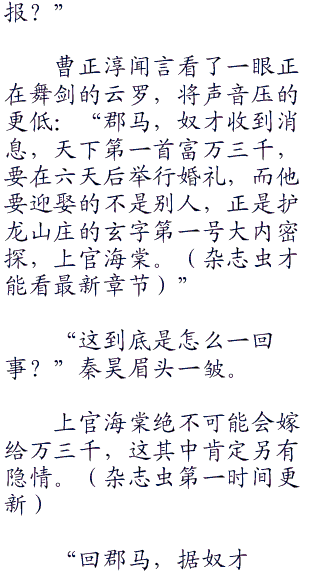 报？”
曹正淳闻言看了一眼正
在舞剑的云罗，将声音压的
更低：“郡马，奴才收到消
息，天下第一首富万三千，
要在六天后举行婚礼，而他
要迎娶的不是别人，正是护
龙山庄的玄字第一号大内密
探，上官海棠。（杂志虫才
能看最新章节）”
“这到底是怎么一回
事？”秦昊眉头一皱。
上官海棠绝不可能会嫁
给万三千，这其中肯定另有
隐情。（杂志虫第一时间更
新）
“回郡马，据奴才